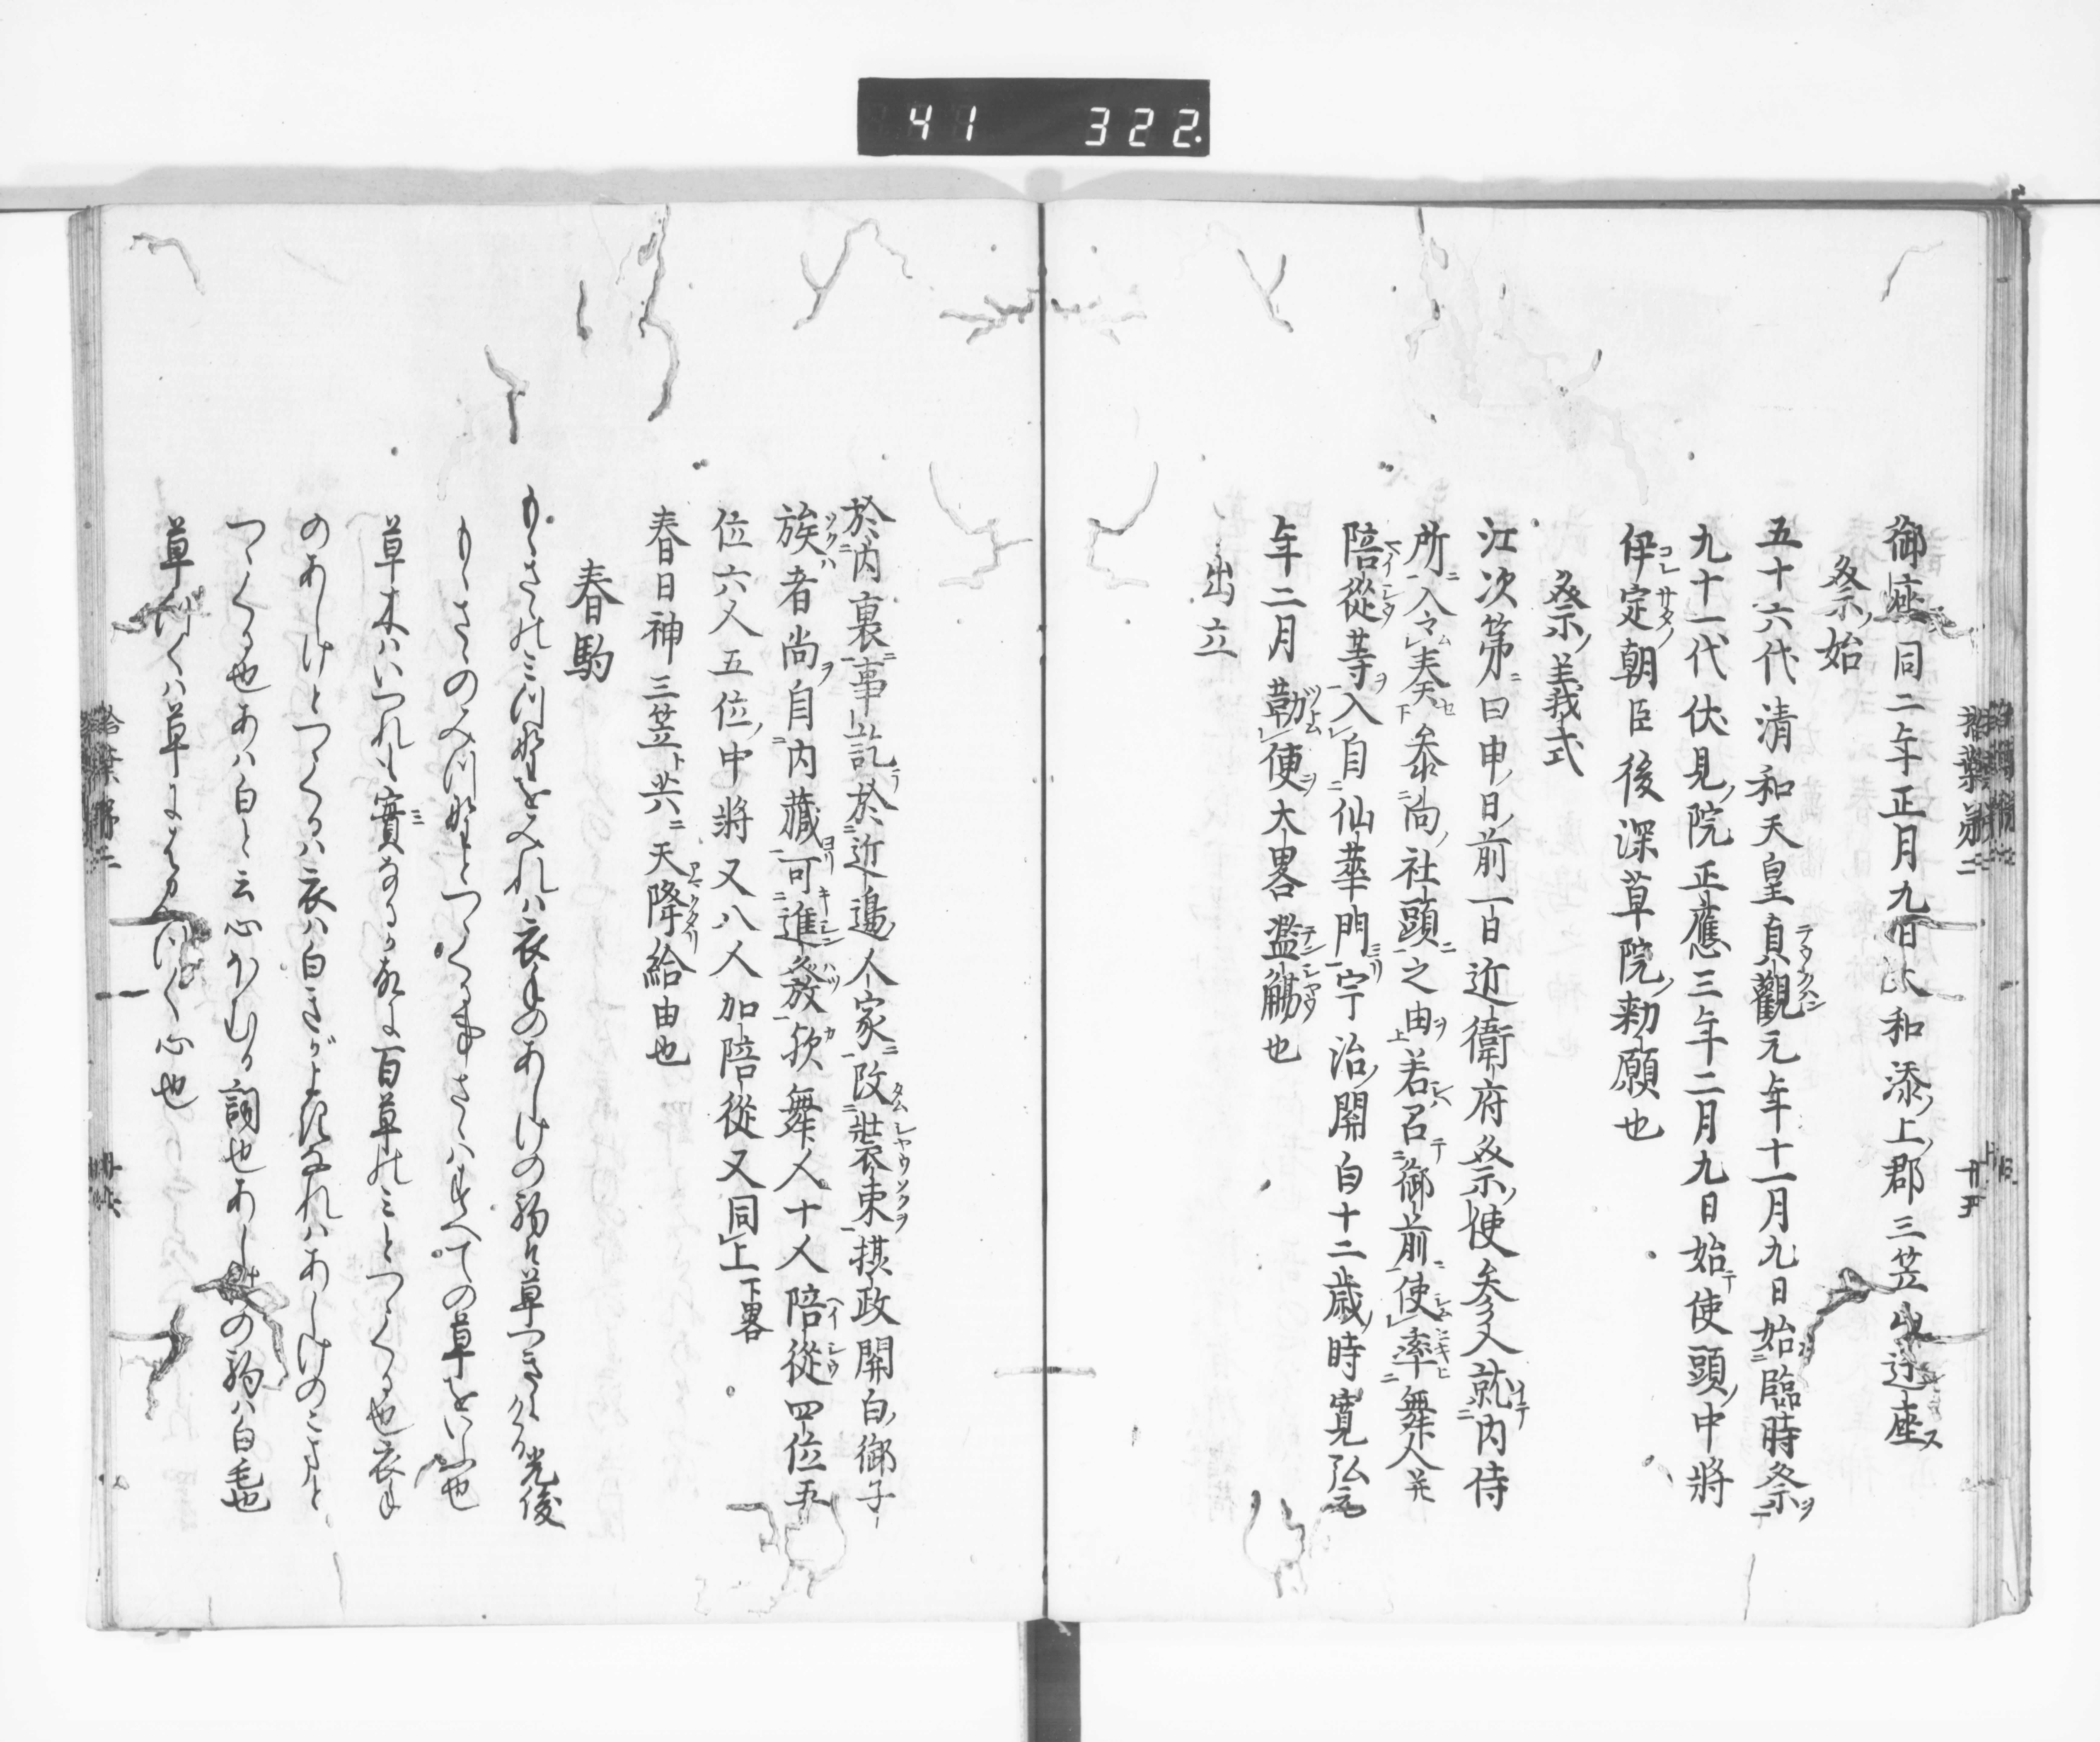 41 322
御座同二年正月九日大和添ノ上ノ郡三笠山迁座ス
祭ノ始
五十六代清和天皇貞觀元年十一月九日始臨時祭ヲ
九十一代伏見ノ院正應三年二月九日始テ使頭ノ中將
伊定朝臣後深草院ノ勅願也
祭ノ義式
江次第ニ曰申ノ日ノ前一日近衛府祭ノ使参入就内侍
所ニ入令奏天下参向ノ社頭ニ之由ヲ上若召テ御前ニ使率舞人并
陪從等ヲ入自仙華門宇治ノ關白十二歳ノ時寛弘元
年二月勤使ヲ大畧濫觴也
出立
於内裏事訖テ於近邊ノ人家ニ改裝束攝政關白ノ御子
族者尚ヲ自内藏可進發歟舞人十人陪從四位五
位六人五位ノ中將又八人加陪從又同上下畧
春日神三笠ト共ニ天降給由也
春駒
もゝさのミつ野をみれハ衣手のあしけの駒そ草つきにける 光俊
もゝさのみつ野とつゝくる事さハすへての草をいふ也
草木ハいつれも實なるか故に百草のミとつゝくる也衣手
のあしけとつゝくるハ衣ハ白きがよきなれハあしけのこまと
つゝくる也あハ白と云心ほむる詞也あしけの駒ハ白毛也
草付くハ草に
心也